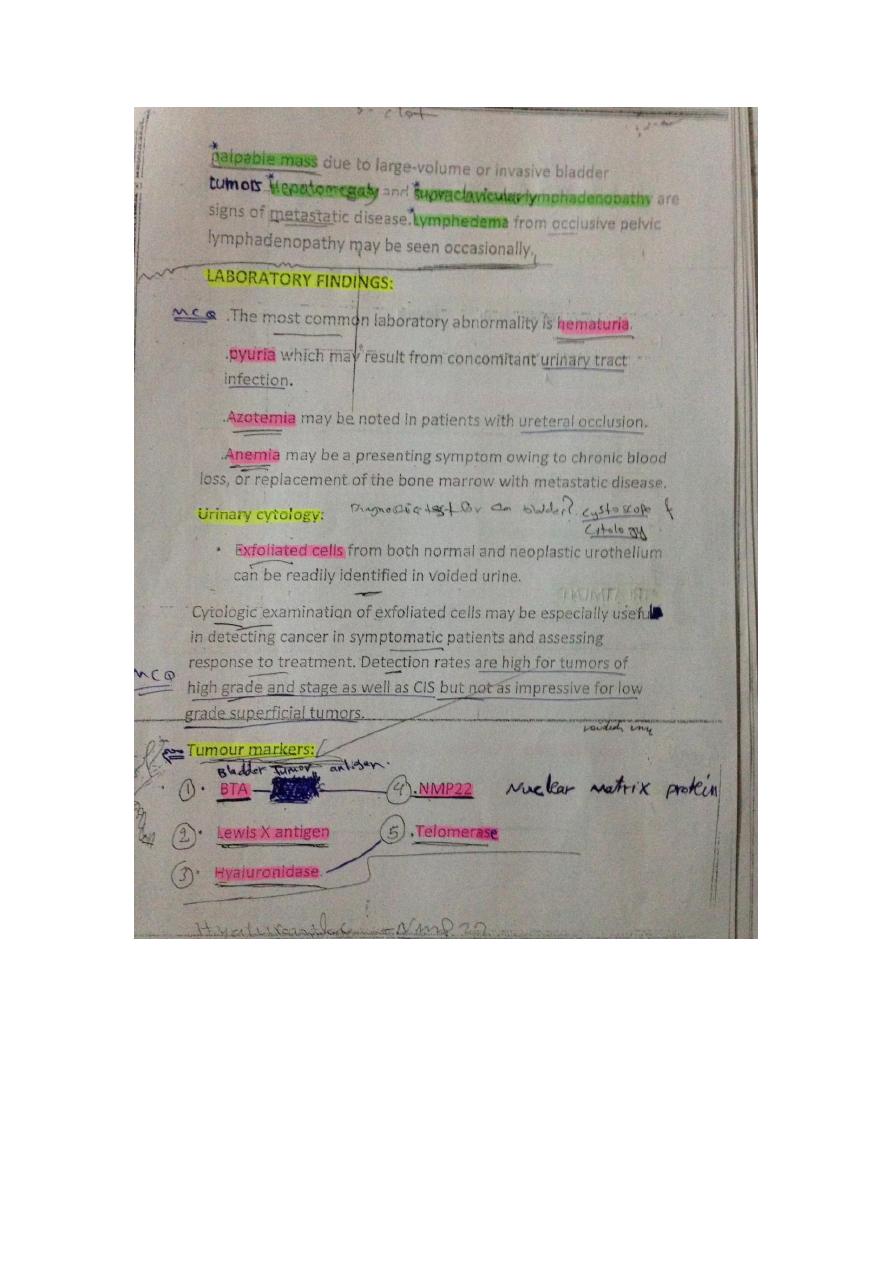 - clot
palpable mass due to large-volume or invasive bladder
tumors Hepatomegaly and supraclavicularlymphadenopathy are
signs of metastatic disease.Lymphedema from occlusive pelvic
lymphadenopathy may be seen occasionally.
LABORATORY FINDINGS:
MCQ .The most common laboratory abnormality is hematuria.
.pyuria which may result from concomitant urinary tract
infection.
.Azotemia may be noted in patients with ureteral occlusion.
.Anemia may be a presenting symptom owing to chronic blood
loss, or replacement of the bone marrow with metastatic disease.
Urinary cytology: Diagnostic test for Ca bladder? cystoscope &
Cytology
• Exfoliated cells from both normal and neoplastic urothelium
can be readily identified in voided urine.
Cytologic examination of exfoliated cells may be especially useful
in detecting cancer in symptomatic patients and assessing
response to treatment. Detection rates are high for tumors of
MCQ high grade and stage as well as CIS but not as impressive for low
grade superficial tumors.
Tumour markers:
Bladder Tumor antigen.
1 • BTA 4 .NMP22 Nuclear matrix protein
2 • Lewis X antigen 5 .Telomerase
3 • Hyaluronidase.
NMP22